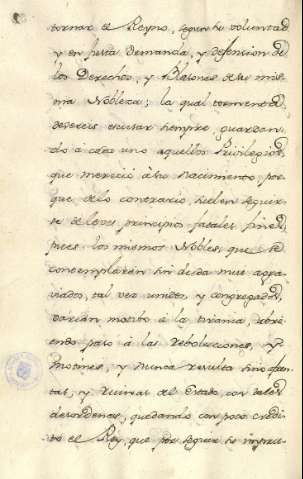 tornar el Reyno, segun su voluntad
y en justa demanda, y defension de
los Derechos, y Blasones de su mis
ma Nobleza; la qual tormenta,
debereis escusar siempre, guardan
do à cada uno aquellos Privilegios,
que mereciò à su nacimiento; por
que de lo contrario, suelen seguir
se de leves principios fatales fines,
pues los mismos Nobles, que se
contemplaràn sin duda muy agra
viados, tal vez unidos, y congregados,
daràn motibo à la tirania, abri
endo paso à las reboluciones, y
motines, y nunca resulta sino
y ruinas del Estado, con tales
desordenes, quedando con poco credi
to el Rey, que por seguir su